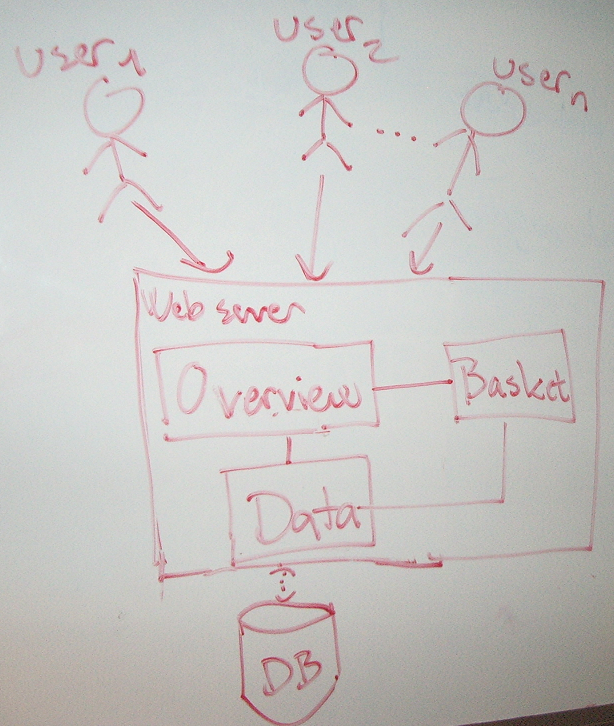 user1
user2
usern
Web server
Overview
Basket
Data
DB